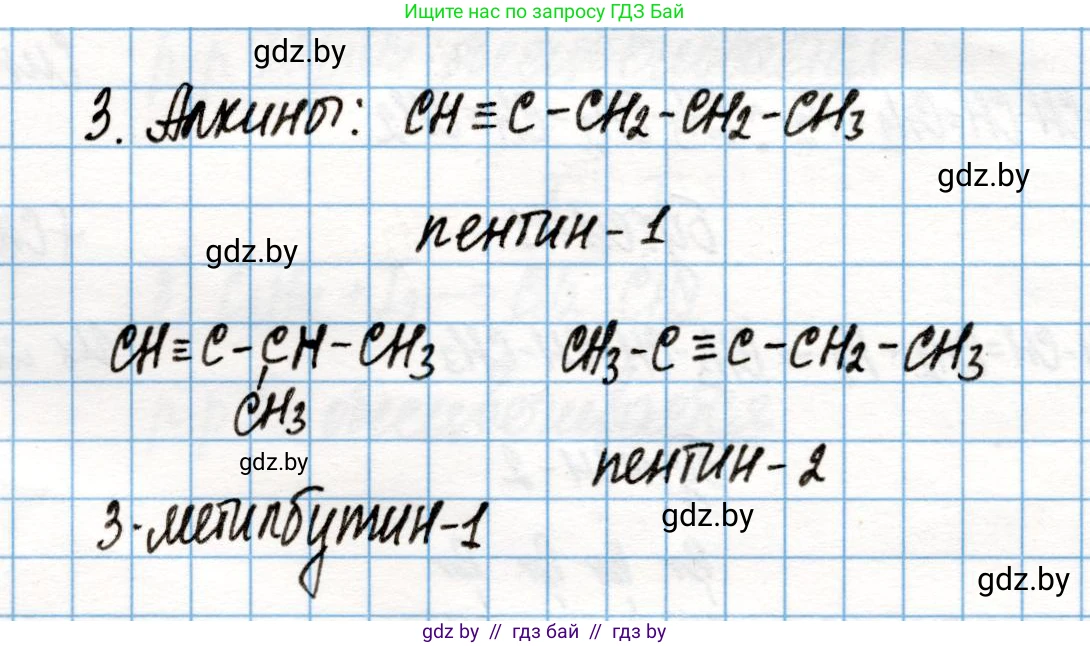 Ищите нас по запросу ГДЗ Бай
gdz.by
3. Алкины: CH≡C-CH2-CH2-CH3
gdz.by
пентин-1
gdz.by
CH≡C-CH-CH3
CH3
CH3-C≡C-CH2-CH3
gdz.by
пентин-2
3-метилбутин-1
gdz.by
gdz.by
gdz by // гдз бай // гдз by